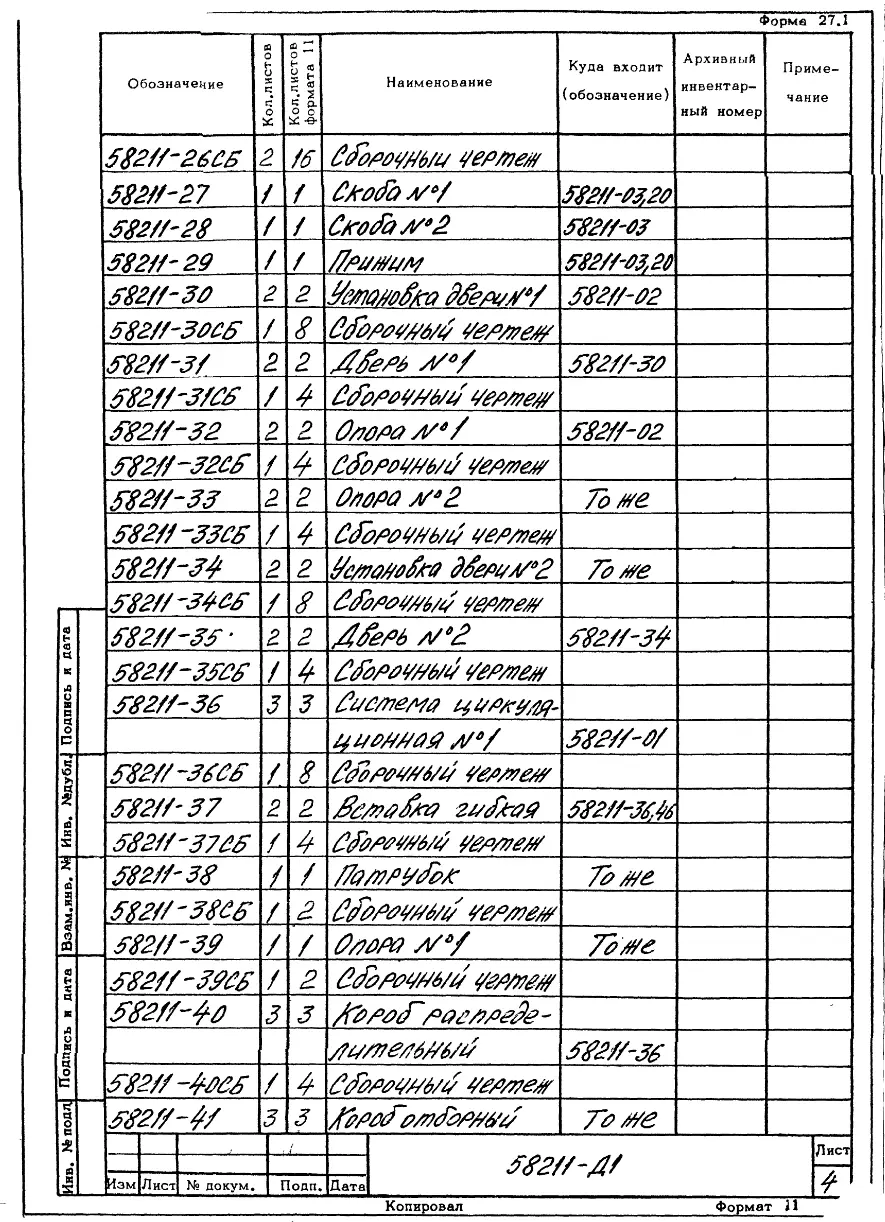 Форма 27.1
Обозначение Кол.листов Кол.листов формата 11 Наименование Куда входит (обозначение) Архивный инвентарный номер Примечание
58211-26СБ 2 16 Сборочный чертеж
58211-27 1 1 Скоба №1 58211-03,20
58211-28 1 1 Скоба №2 58211-03
58211-29 1 1 Прижим 58211-03,20
58211-30 2 2 Установка двери №1 58211-02
58211-30СБ 1 8 Сборочный чертеж
58211-31 2 2 Дверь №1 58211-30
58211-31СБ 1 4 Сборочный чертеж
58211-32 2 2 Опора №1 58211-02
58211-32СБ 1 4 Сборочный чертеж
58211-33 2 2 Опора №2 То же
58211-33СБ 1 4 Сборочный чертеж
58211-34 2 2 Установка двери №2 То же
58211-34СБ 1 8 Сборочный чертеж
58211-35 2 2 Дверь №2 58211-34
58211-35СБ 1 4 Сборочный чертеж
58211-36 3 3 Система циркуля-
ционная №1 58211-01
58211-36СБ 1 8 Сборочный чертеж
58211-37 2 2 Вставка гибкая 58211-36,46
58211-37СБ 1 4 Сборочный чертеж
58211-38 1 1 Патрубок То же
58211-38СБ 1 2 Сборочный чертеж
58211-39 1 1 Опора №1 То же
58211-39СБ 1 2 Сборочный чертеж
58211-40 3 3 Короб распреде-
лительный 58211-36
58211-40СБ 1 4 Сборочный чертеж
58211-41 3 3 Короб отборный То же
Подпись и дата
Инв. №дубл.
Взам.инв. №
Подпись и дата
Инв. №подл
Изм Лист № докум. Подп. Дата
58211-Д1
Лист
4
Копировал Формат 11